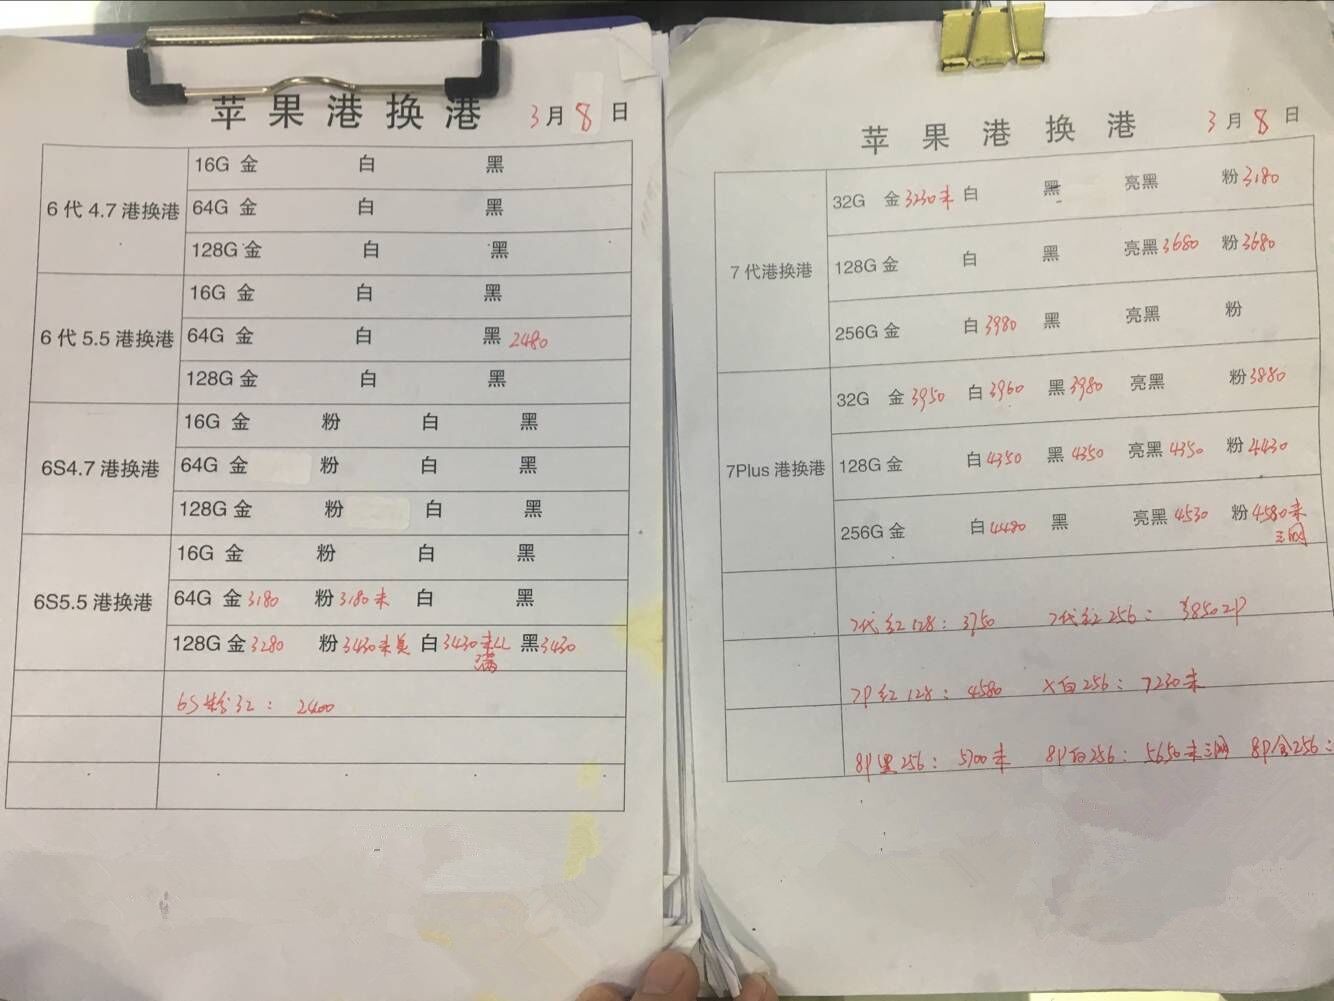 苹果港换港 3月8日
6代4.7港换港
16G 金 白 黑
64G 金 白 黑
128G 金 白 黑
6代5.5港换港
16G 金 白 黑
64G 金 白 黑 2480
128G 金 白 黑
6S4.7港换港
16G 金 粉 白 黑
64G 金 粉 白 黑
128G 金 粉 白 黑
6S5.5港换港
16G 金 粉 白 黑
64G 金 3180 粉 3180未 白 黑
128G 金 3280 粉 3430未美 白 3430未LL 黑 3430
满
6S粉32：2400
苹果港换港 3月8日
7代港换港
32G 金 3230未 白 黑 亮黑 粉 3180
128G 金 白 黑 亮黑 3680 粉 3680
256G 金 白 3980 黑 亮黑 粉
7Plus港换港
32G 金 3950 白 3960 黑 3980 亮黑 粉 3880
128G 金 白 4350 黑 4350 亮黑 4350 粉 4430
256G 金 白 4480 黑 亮黑 4530 粉 4580未
三网
7代红128：3750 7代红256：
7P红128：4580 X白256：7230未
8P黑256：5700未 8P白256：5650未三网 8P金256：